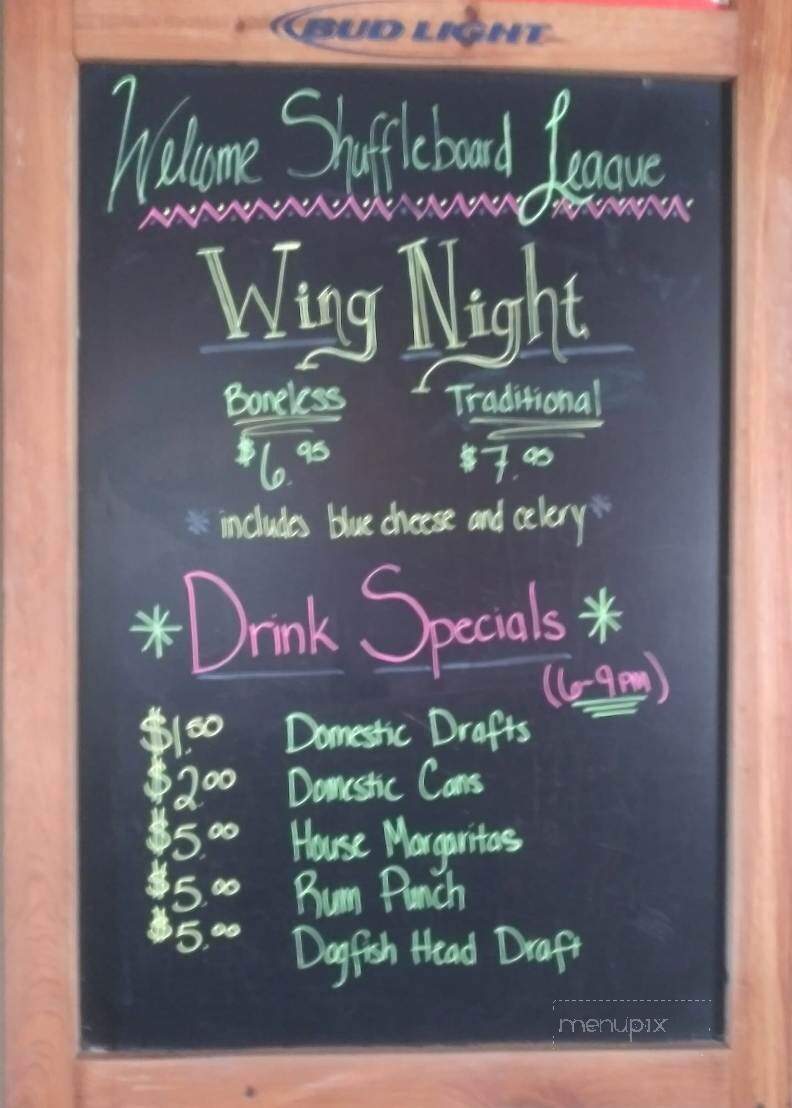 BUD LIGHT
Welcome Shuffleboard League
Wing Night
Boneless Traditional
$6.95 $7.95
*includes blue cheese and celery*
* Drink Specials *
(6-9PM)
$1.50 Domestic Drafts
$2.00 Domestic Cans
$5.00 House Margaritas
$5.00 Rum Punch
$5.00 Dogfish Head Draft
menupix